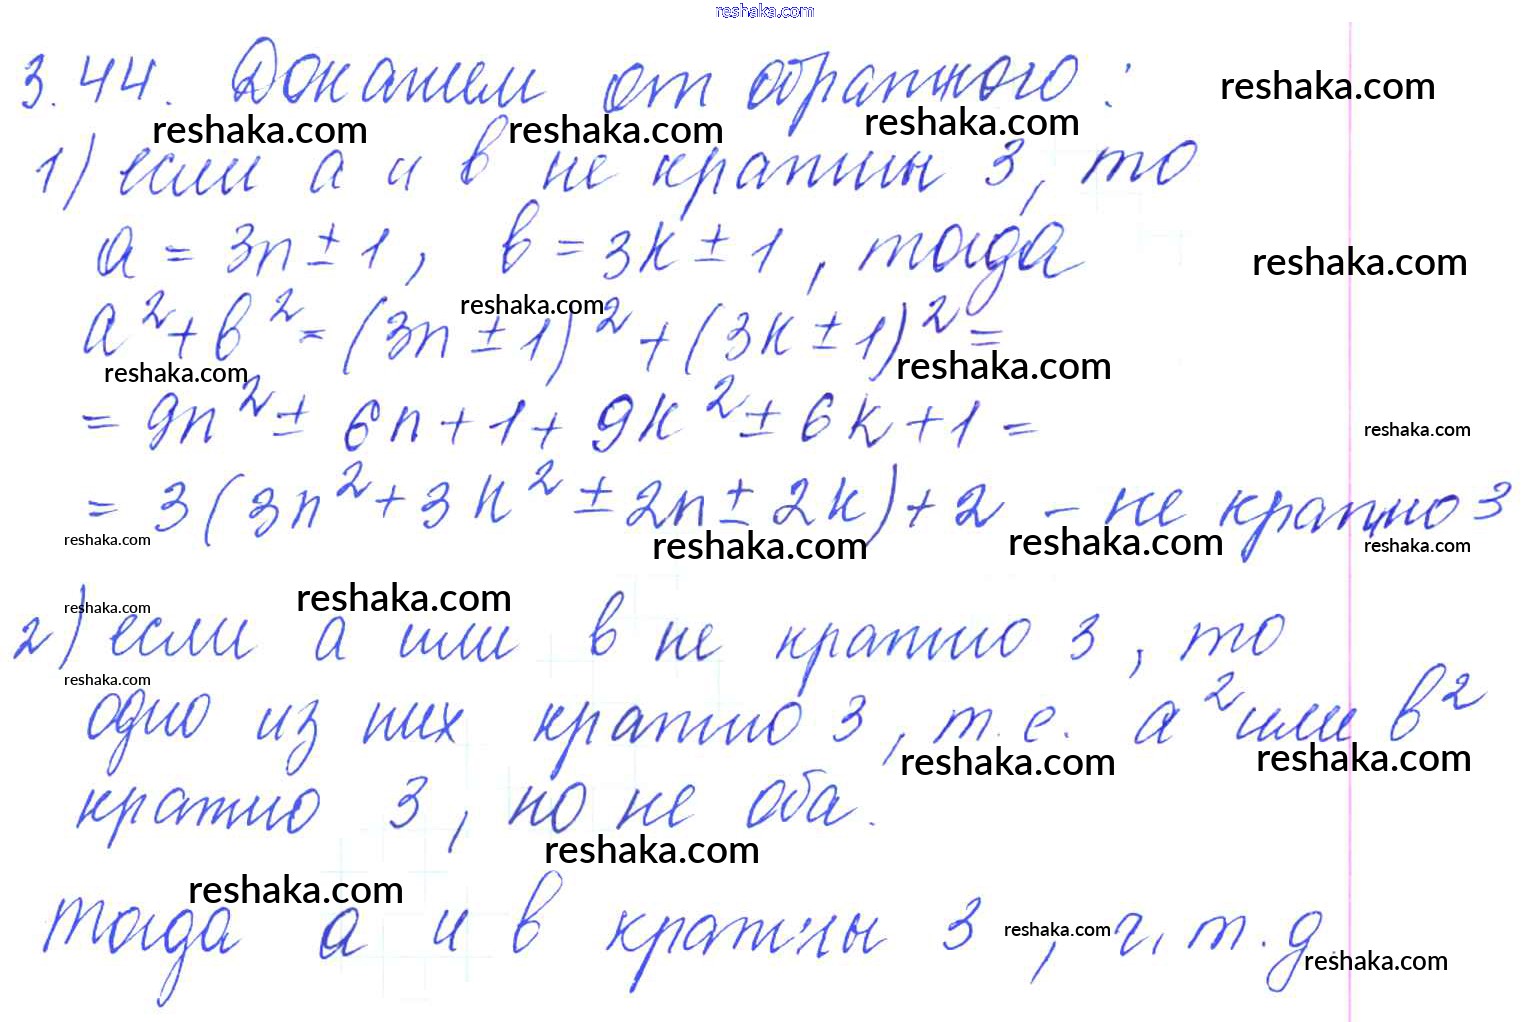 reshaka.com
3.44. Докажем от обратного:
reshaka.com
reshaka.com reshaka.com reshaka.com
1) если а и в не кратны 3, то
а = 3n ± 1, в = 3k ± 1, тогда
reshaka.com
reshaka.com
а² + в² = (3n ± 1)² + (3k ± 1)² =
reshaka.com reshaka.com
= 9n² ± 6n + 1 + 9k² ± 6k + 1 =
reshaka.com
= 3(3n² + 3k² ± 2n ± 2k) + 2 - не кратно 3
reshaka.com reshaka.com reshaka.com reshaka.com
reshaka.com reshaka.com
2) если а или в не кратно 3, то
reshaka.com
одно из них кратно 3, т.е. а² или в²
reshaka.com reshaka.com
кратно 3, но не оба.
reshaka.com
reshaka.com
тогда а и в кратны 3, ч.т.д
reshaka.com
reshaka.com